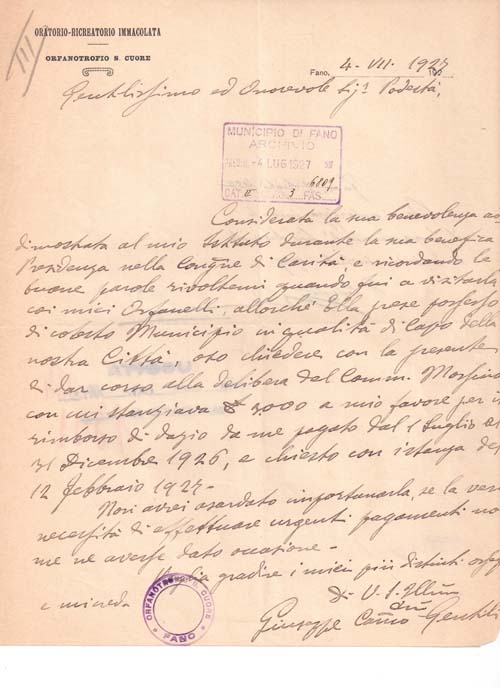 ORATORIO-RICREATORIO IMMACOLATA
ORFANOTROFIO S. CUORE
III
Fano, 4-VII. 1927
Gentilissimo ed Onorevole Sig. Podestà,
MUNICIPIO DI FANO
ARCHIVIO
-4 LUG 1927
6809
CAT. II 3 FAS.
Considerata la sua benevolenza
dimostrata al mio Istituto durante la sua benefica
Presidenza nella Congne di Carità e ricordando le
buone parole rivoltemi quando fui a visitarla
coi miei Orfanelli, allorché Ella prese possesso
di codesto Municipio in qualità di Capo della
nostra Città, oso chiedere con la presente
di dar corso alla delibera del Comm.
con cui stanziava 3000 a mio favore per
rimborso di dazio da me pagato dal 1 Luglio al
31 Dicembre 1926, e chiesto con istanza del
12 febbraio 1927-
Non avrei osardato importunarla, se la vera
necessità di effettuare urgenti pagamenti no
me ne avesse dato occasione-
Voglia gradire i miei più distinti
e mi creda
Di V. S. Illma
ORFANOTROFIO S. CUORE
FANO
Giuseppe Gentili